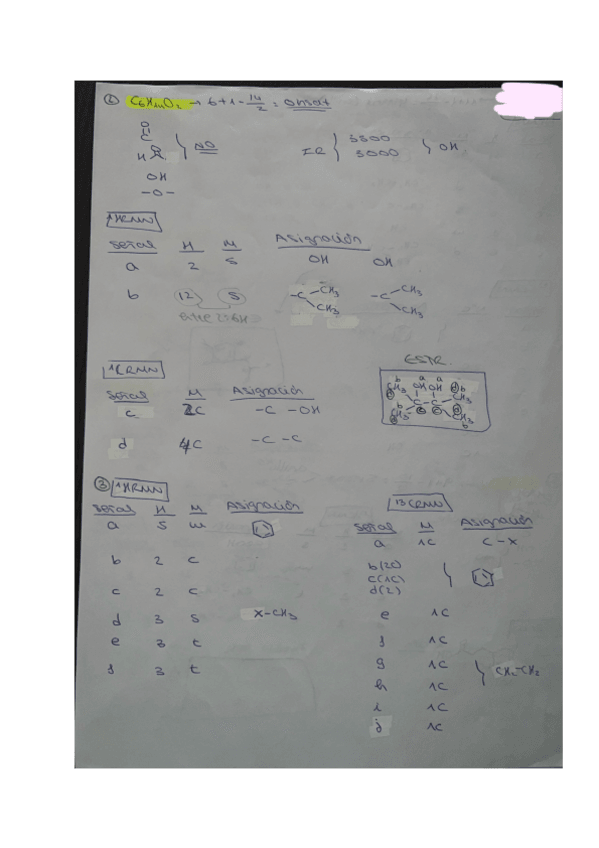 ② C6H14O2 → 6+1-14/2 = 0 insat
O
C
H
NO
IR
3500
3000
OH
OH
-O-
1HRMN
Señal H M Asignación
a 2 s OH OH
b 12 s -C CH3 CH3 -C CH3 CH3
1CRMN
Señal M Asignación
c 2C -C-OH
d 4C -C-C
ESTR.
b a a b
CH3 OH OH CH3
C-C
CH3 CH3
b b
③ 1HRMN
Señal H M Asignación
a 5 m
b 2 c
c 2 c
d 3 s X-CH3
e 3 t
f 3 t
13CRMN
Señal M Asignación
a 1C C-X
b(2C)
c(1C)
d(2)
e 1C
f 1C
g 1C
h 1C
CH2-CH2
i 1C
j 1C